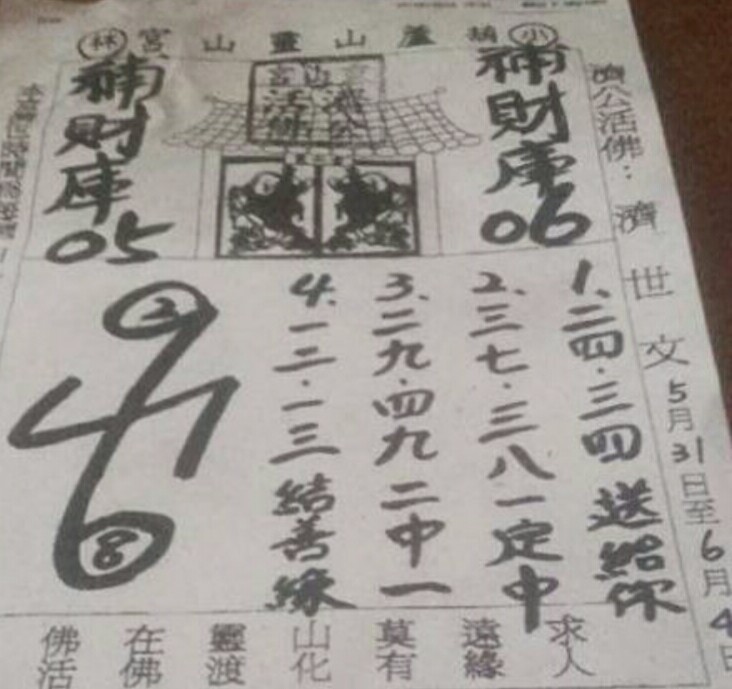 小 葫蘆山靈山宮 林
濟公活佛：濟世文 5月31日至6月4日
補財庫 06
濟公活佛
補財庫 05
1.二四.三四送給你
2.三七.三八一定中
3.二九.四九二中一
4.一二.一三結善緣
2
8
求人
遠緣
莫有
山化
靈渡
在佛
佛活